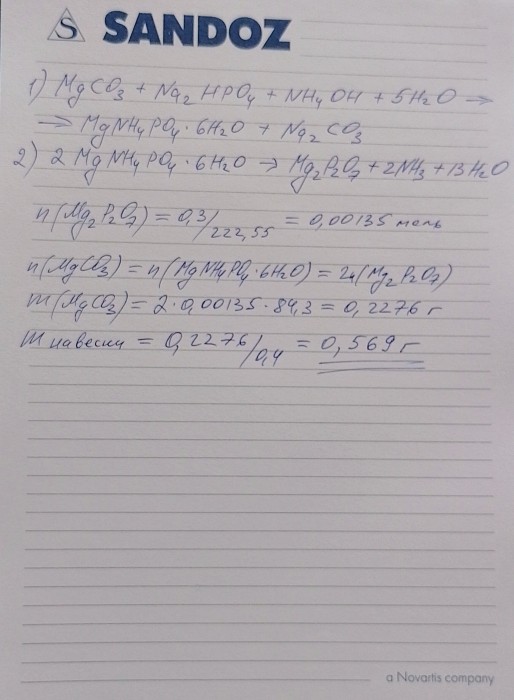 S SANDOZ
1) MgCO3 + Na2 HPO4 + NH4 OH + 5H2O →
→ MgNH4PO4 · 6H2O + Na2 CO3
2) 2 MgNH4PO4 · 6H2O → Mg2P2O7 + 2NH3 + 13H2O
n(Mg2P2O7) = 0,3/222,55 = 0,00135 моль
n(MgCO3) = n(MgNH4PO4·6H2O) = 2n(Mg2P2O7)
m(MgCO3) = 2·0,00135·84,3 = 0,2276 г
m навески = 0,2276/0,4 = 0,569 г
a Novartis company